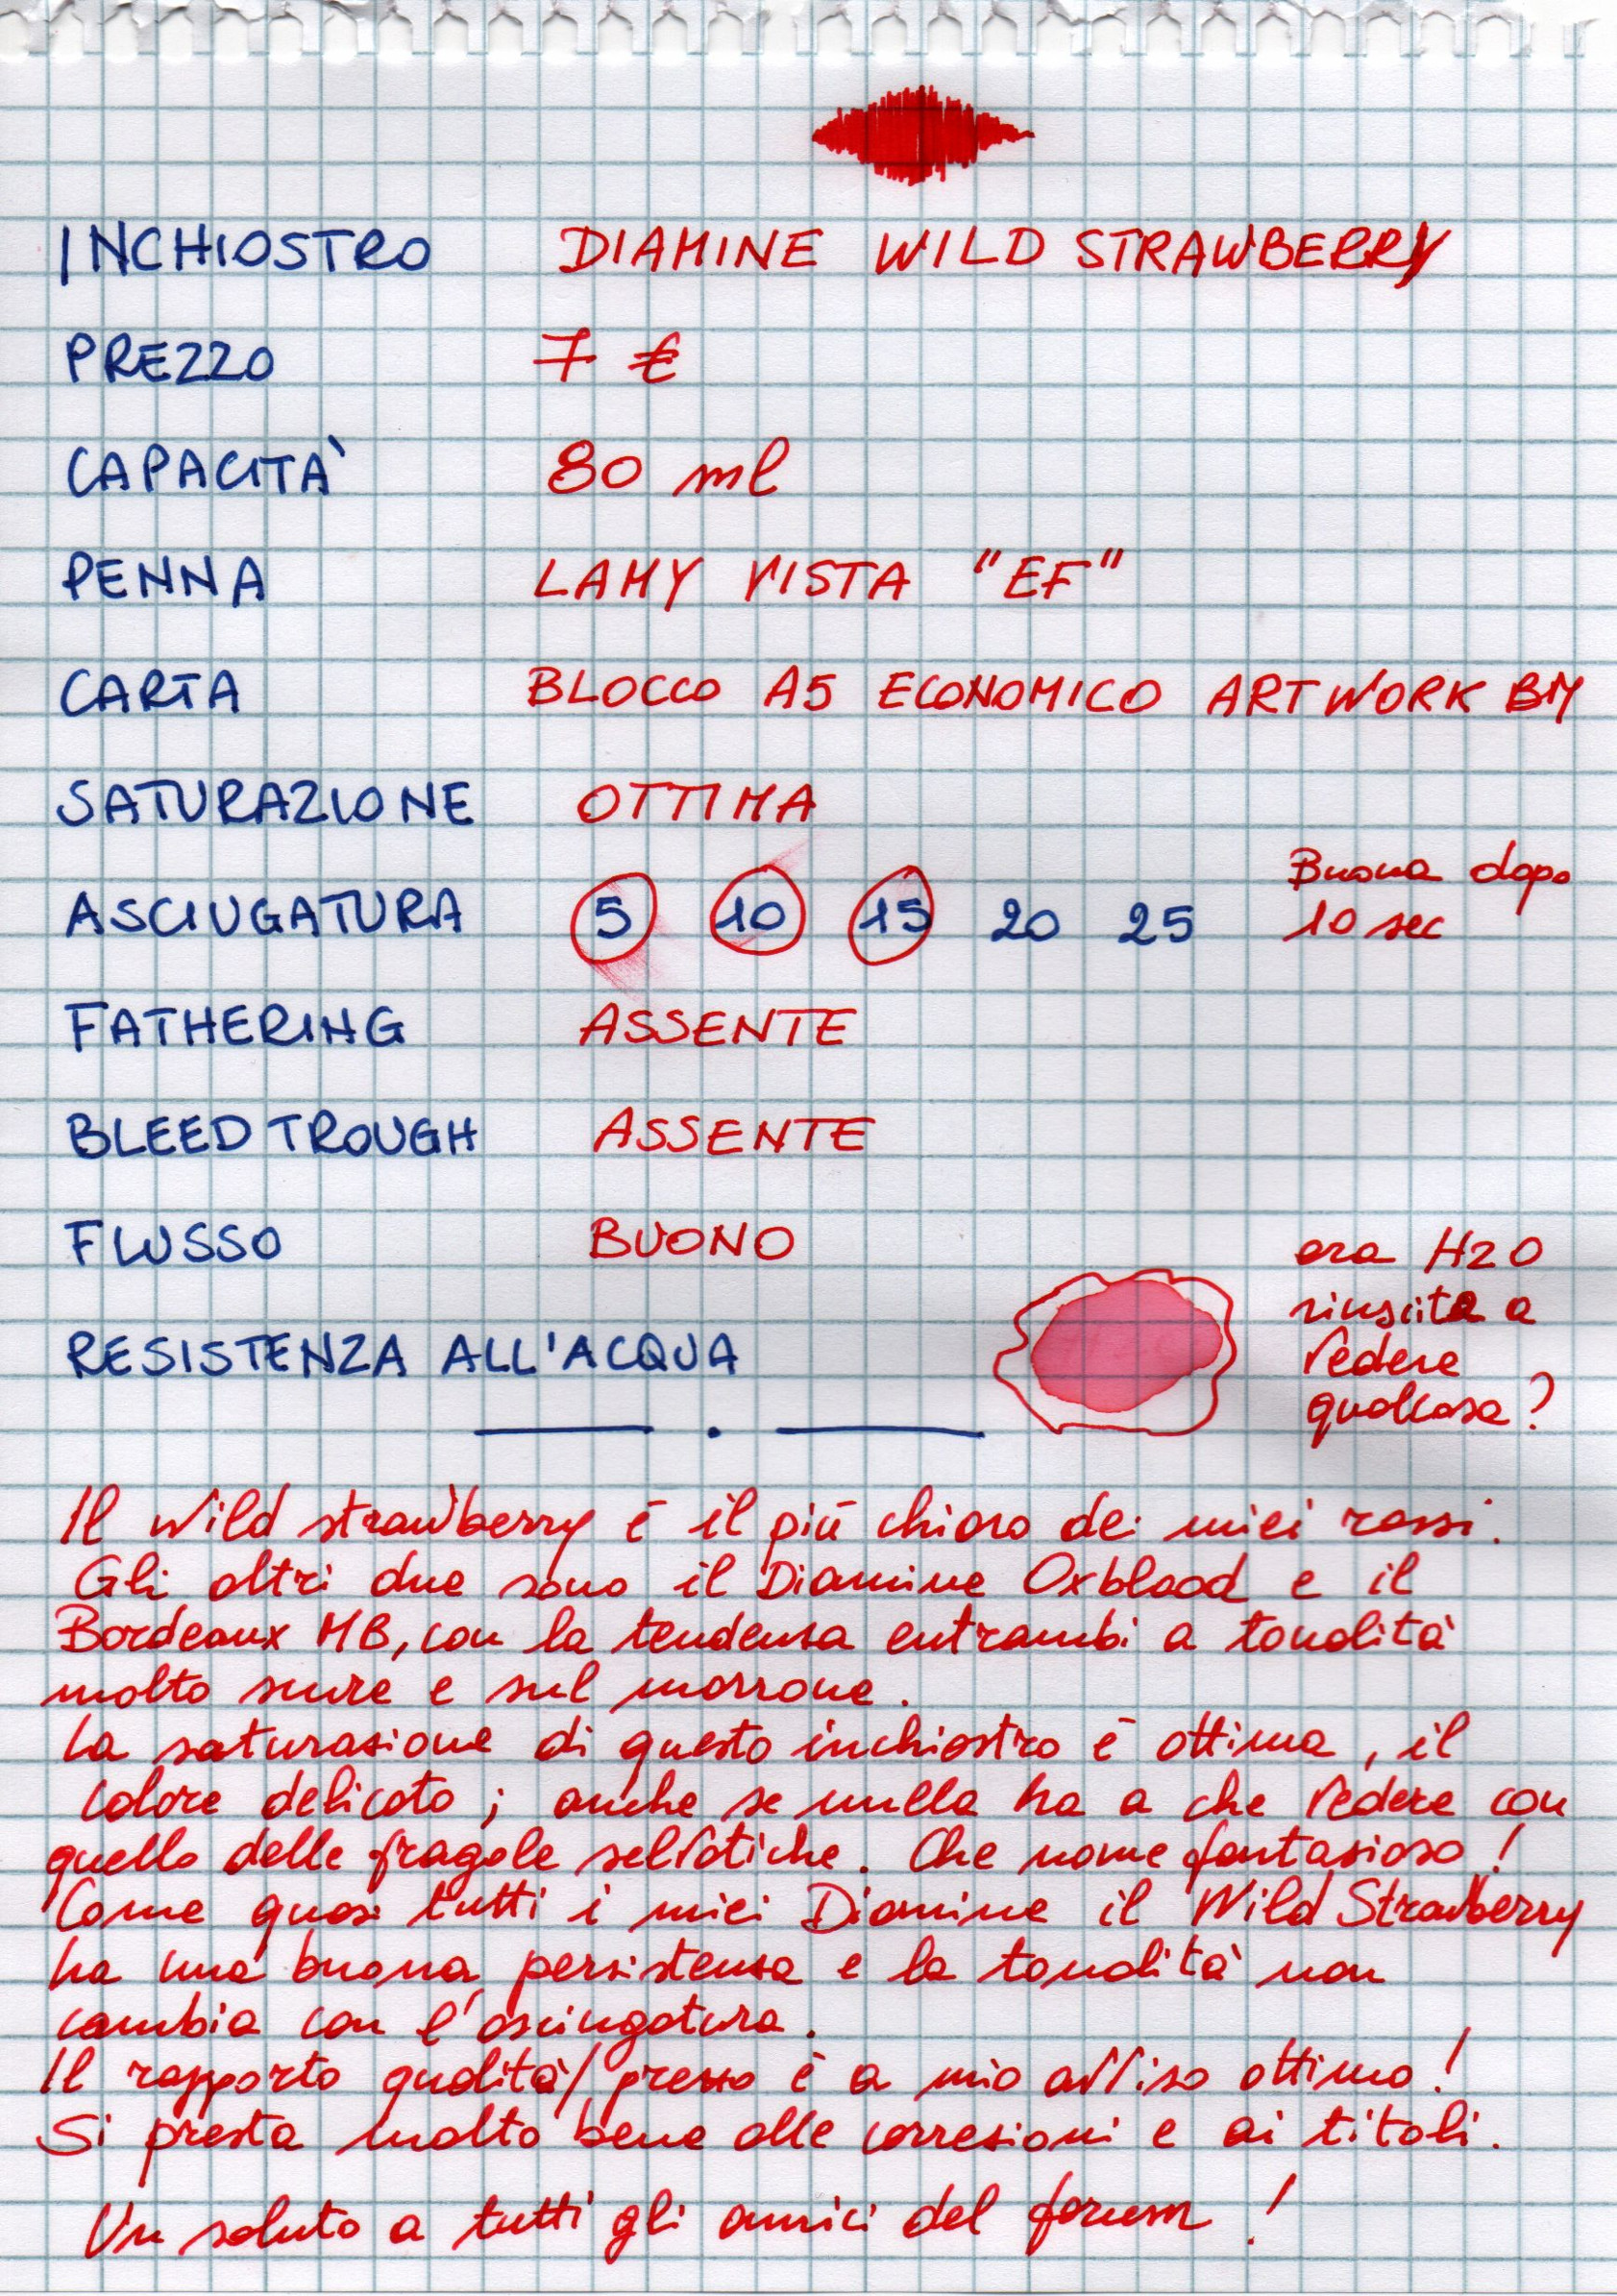 INCHIOSTRO DIAMINE WILD STRAWBERRY
PREZZO 7 €
CAPACITÀ 80 ml
PENNA LAMY VISTA "EF"
CARTA BLOCCO A5 ECONOMICO ARTWORK BM
SATURAZIONE OTTIMA
ASCIUGATURA 5 10 15 20 25 Buona dopo
10 sec
FATHERING ASSENTE
BLEED TROUGH ASSENTE
FLUSSO BUONO
RESISTENZA ALL'ACQUA
ora H2O
riuscite a
vedere
qualcosa?
Il Wild strawberry è il più chiaro dei miei rossi.
Gli altri due sono il Diamine Oxblood e il
Bordeaux MB, con la tendenza entrambi a tonalità
molto scure e sul marrone.
La saturazione di questo inchiostro è ottima, il
colore delicato; anche se nulla ha a che vedere con
quello delle fragole selvatiche. Che nome fantasioso!
Come quasi tutti i miei Diamine il Wild Strawberry
ha una buona persistenza e la tonalità non
cambia con l'asciugatura.
Il rapporto qualità/prezzo è a mio avviso ottimo!
Si presta molto bene alle correzioni e ai titoli.
Un saluto a tutti gli amici del forum!